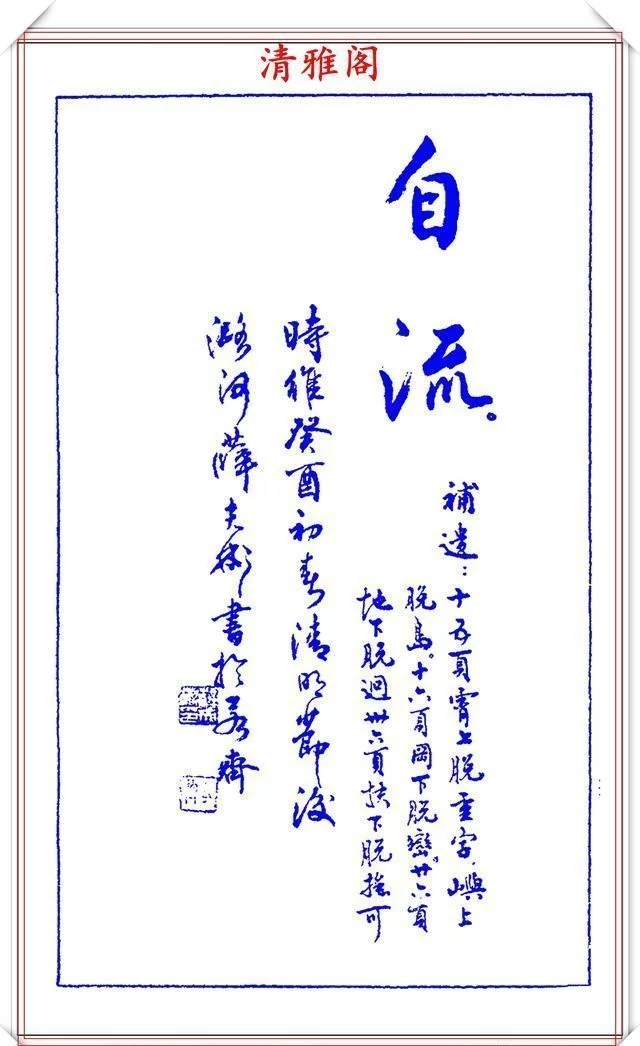 清雅阁
自
流。
補遺：十五頁霄上脱重字、嶼上
脱島。十六頁岡下脱巒。廿六頁
地下脱迥卅六頁扶下脱摇可
時維癸酉初春清明節後
潞河薛夫彬書於齋